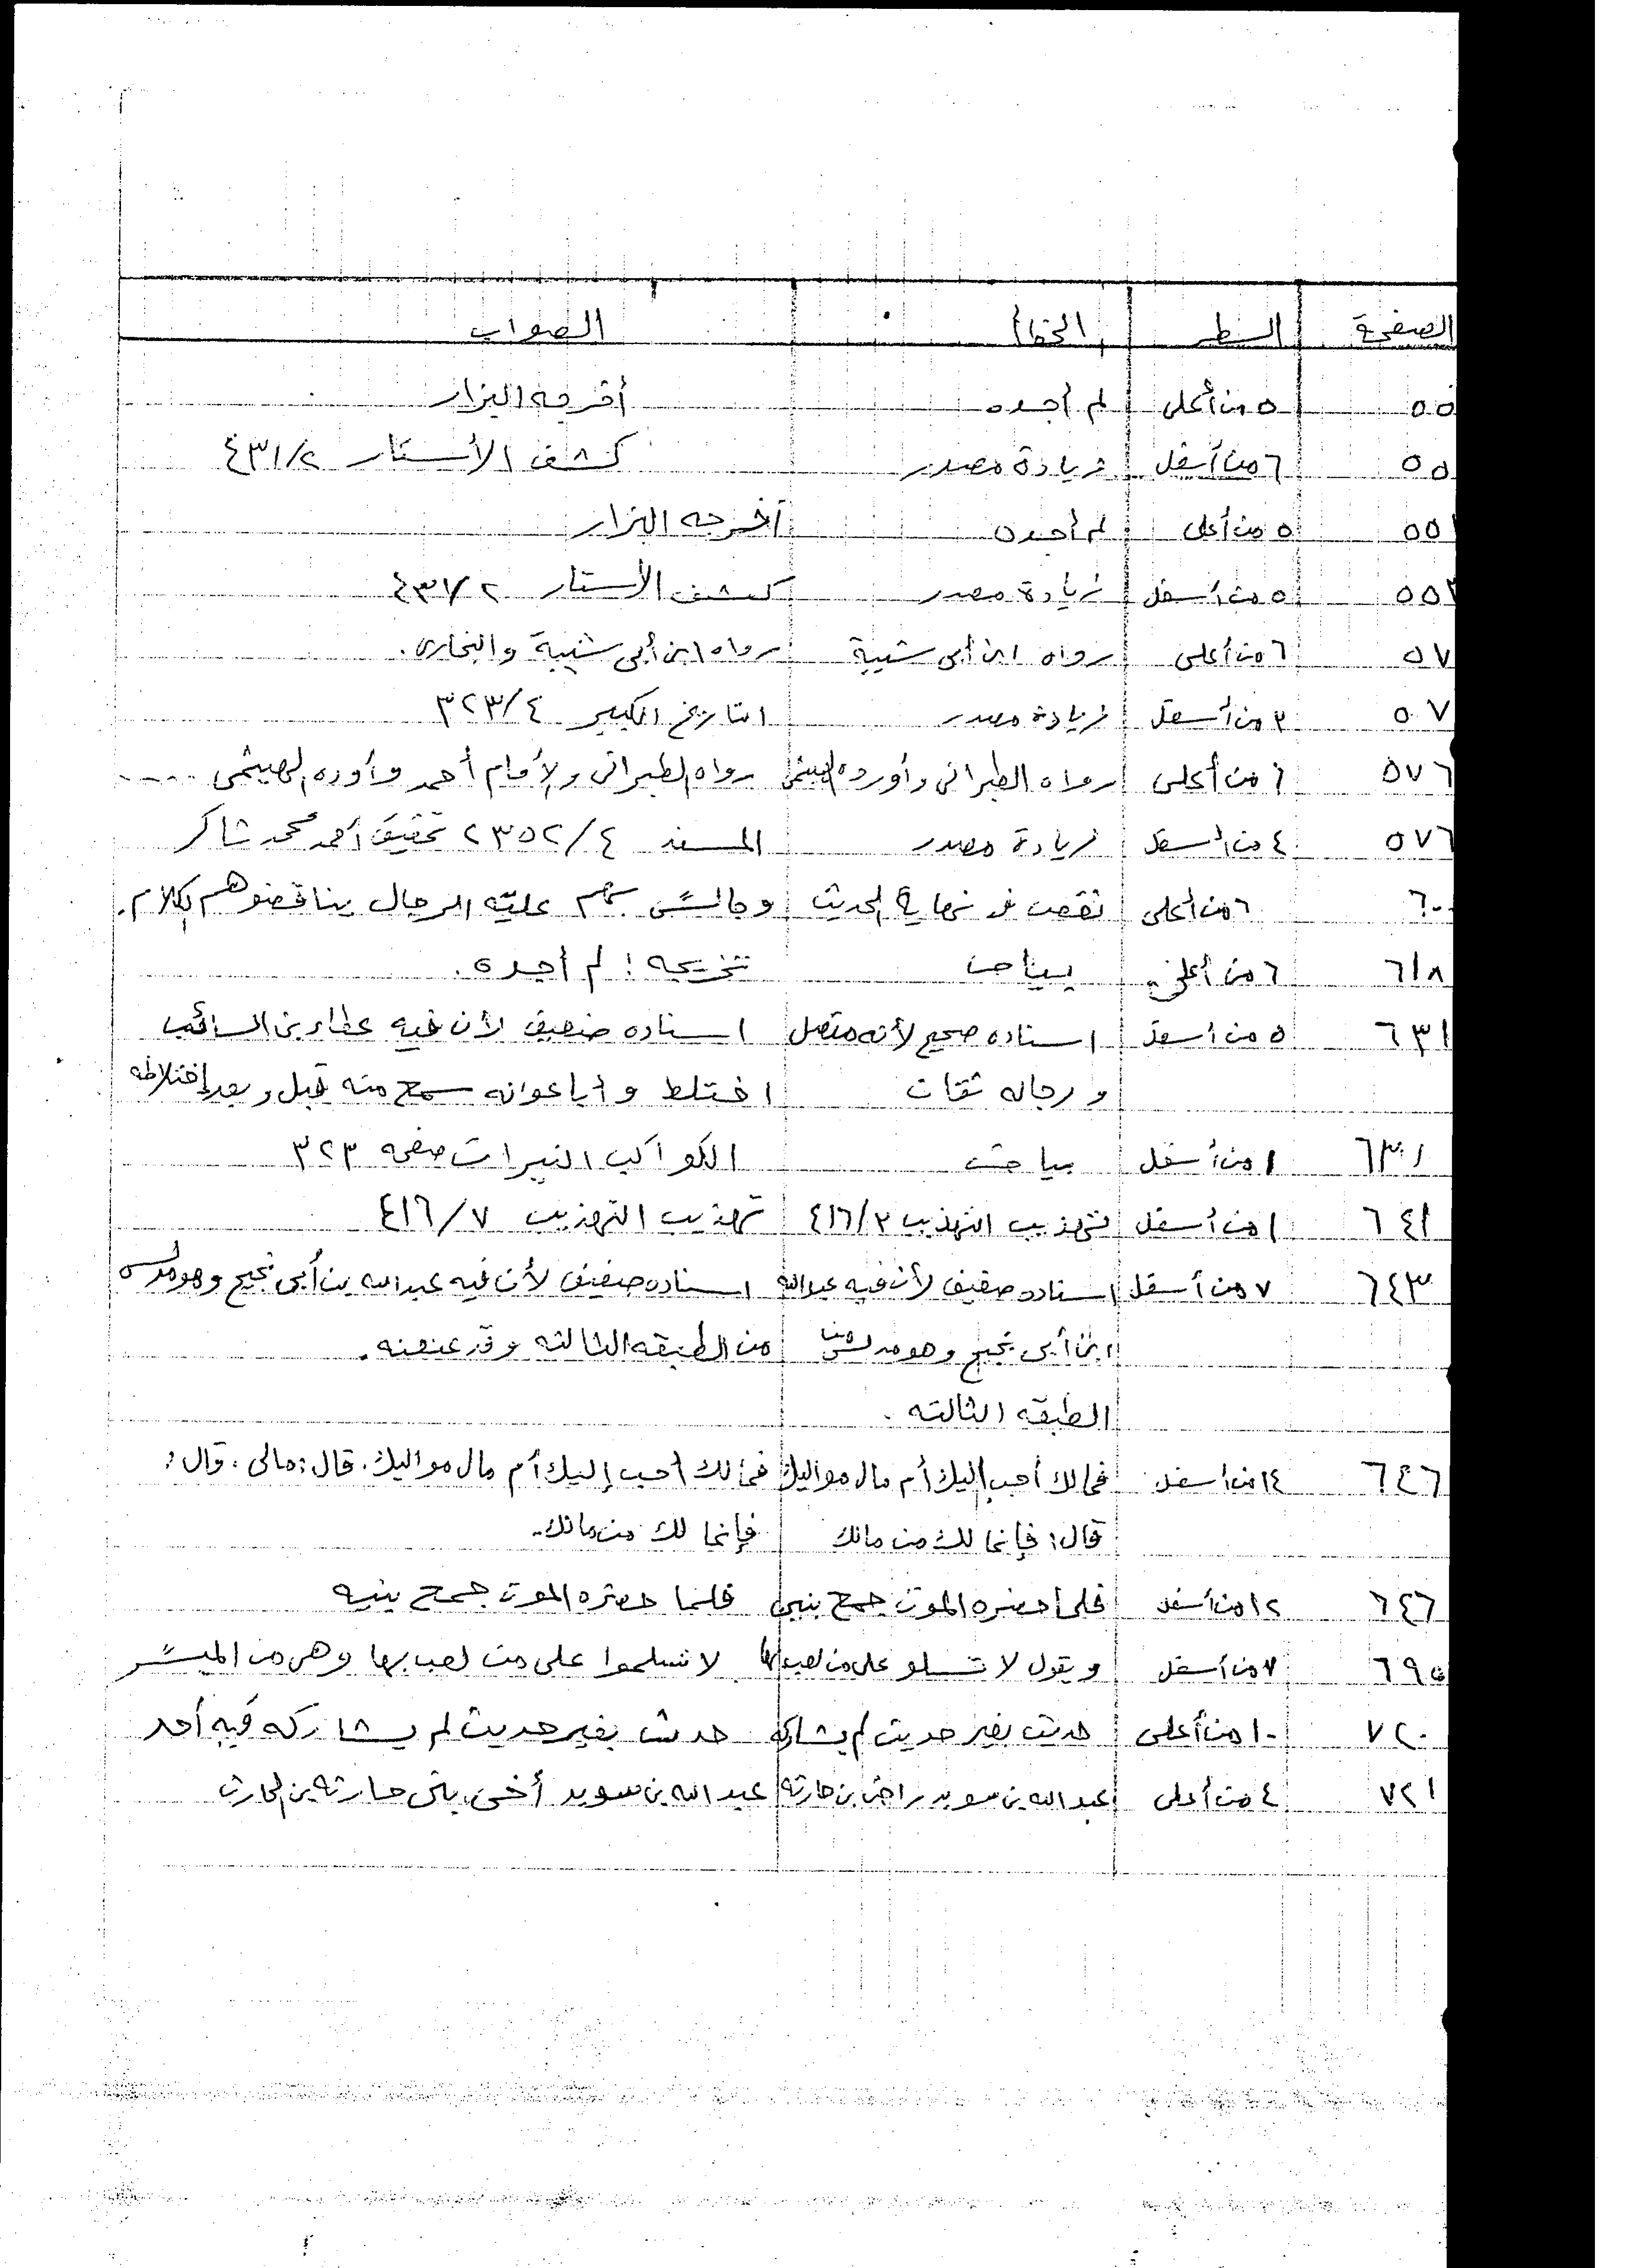 الصفحة السطر الخطأ الصواب
٥٥ ٥ من أعلى لم أجده أخرجه البزار
٥٥ ٦ من أسفل زيادة مصدر كشف الأستار ٤٣١/٢
٥٥ ٥ من أعلى لم أجده أخرجه البزار
٥٥ ٥ من أسفل زيادة مصدر كشف الأستار ٤٣١/٢
٥٧ ٦ من أعلى رواه ابن أبى شيبة رواه ابن أبى شيبة والبخارى.
٥٧ ٣ من أسفل زيادة مصدر التاريخ الكبير ٣٢٣/٤
٥٧٦ ٦ من أعلى رواه الطبرانى وأورده الهيثمى رواه الطبرانى والإمام أحمد وأورده الهيثمى ....
٥٧٦ ٤ من أسفل زيادة مصدر المسند ٢٣٥٢/٤ تحقيق أحمد محمد شاكر
٦٠٠ ٦ من أعلى نقص فى نهاية الحديث وجالس بهم علية الرجال يناقضوهم الكلام.
٦١٨ ٦ من أعلى بياض تخريجه: لم أجده.
٦٣١ ٥ من أسفل اسناده صحيح لأنه متصل اسناده ضعيف لأن فيه عطاء بن السائب
ورجاله ثقات اختلط وأبا عوانه سمع منه قبل وبعد إختلاطه
٦٣١ ١ من أسفل بياض الكواكب النيرات صفحه ٣٢٣
٦٤١ ١ من أسفل تهذيب التهذيب ٤١٦/٣ تهذيب التهذيب ٤١٦/٧
٦٤٣ ٧ من أسفل اسناده ضعيف لأن فيه عبدالله اسناده ضعيف لأن فيه عبدالله بن أبى نجيح وهو مدلس
ابن أبى نجيح وهو مدلس من من الطبقه الثالثه وقد عنعنه.
الطبقه الثالثه.
٦٤٦ ١٤ من أسفل فمالك أحب إليك أم مال مواليك فمالك أحب إليك أم مال مواليك. قال: مالى. قال:
قال: فإنما لك من مالك فإنما لك من مالك.
٦٤٦ ١٢ من أسفل فلما حضره الموت جمع بنيى فلما حضره الموت جمع بنيه
٦٩٥ ٧ من أسفل ويقول لا تسلو على من لعب بها لا تسلموا على من لعب بها وهى من الميسر
٧٢٠ ١٠ من أعلى حديث بغير حديث لم يشاركه حدث بغير حديث لم يشاركه فيه أحد
٧٢١ ٤ من أعلى عبدالله بن سويد بن حارثه عبدالله بن سويد أخى بنى حارثه بن الحارث